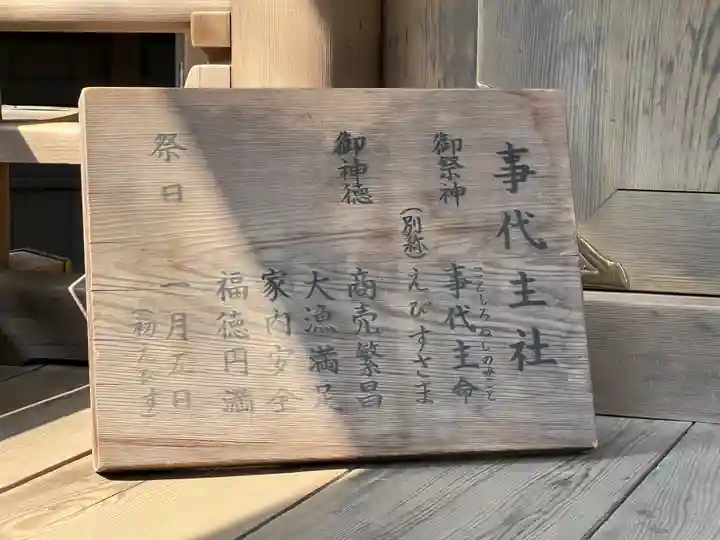 事代主社
御祭神 事代主命
ことしろぬしのみこと
(別称)えびすさま
御神徳 商売繁昌
大漁満足
家内安全
福徳円満
祭日 一月五日
(初えびす)